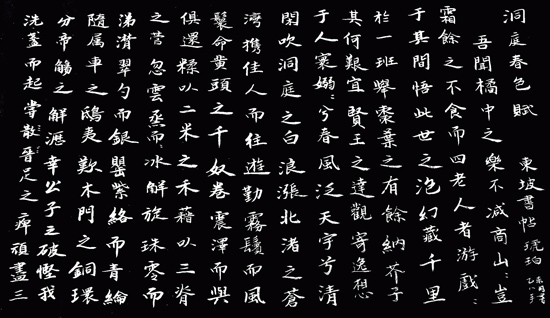 洞庭春色賦 東坡書帖 琥珀
吾聞橘中之樂不减商山豈
霜餘之不食而四老人者游戲
于其間悟此世之泡幻藏千里
於一班舉棗葉之有餘納芥子
其何艱宜賢王之達觀寄逸想
于人寰嫋兮春風泛天宇兮清
閑吹洞庭之白浪漲北渚之蒼
灣攜佳人而往遊勤霧鬢而風
鬟命黄頭之千奴卷震澤而與
俱還糅以二米之禾藉以三脊
之菅忽雲蒸而冰解旋珠零而
涕潸翠勺而銀罌紫絡而青綸
隨属車之鴟夷款木門之銅環
分帝觴之解瀝幸公子之破慳我
洗盞而起嘗散足之痺頑盡三